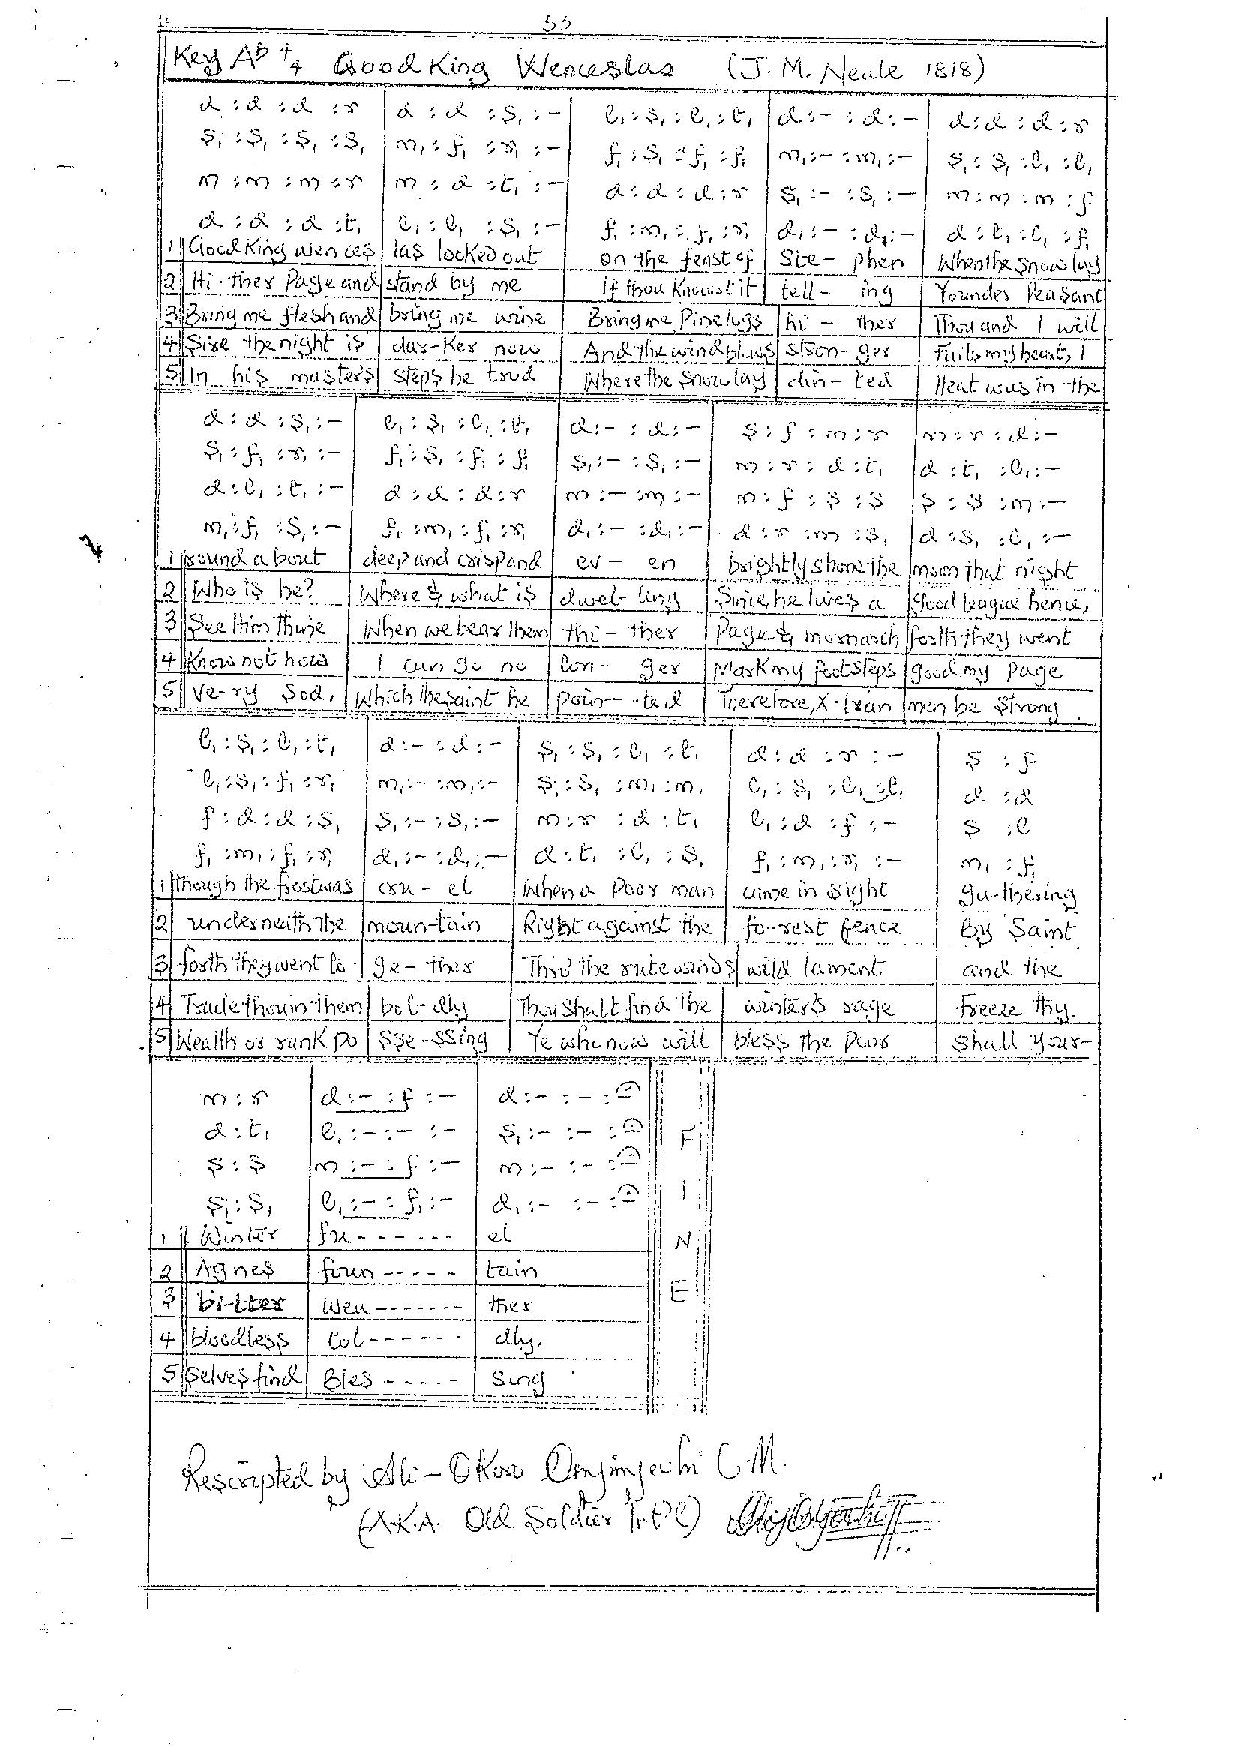 55
Key Ab 4/4 Good King Wenceslas (J. M. Neale 1818)
d :d :d :r | d :d :s₁ :- | l₁ :s₁ :l₁ :t₁ | d :- :d :- | d :d :d :r
s₁ :s₁ :s₁ :s₁ | m₁ :f₁ :r₁ :- | f₁ :s₁ :f₁ :f₁ | m₁ :- :m₁ :- | s₁ :s₁ :l₁ :l₁
m :m :m :r | m :d :t₁ :- | d :d :d :r | s₁ :- :s₁ :- | m :m :m :f
d :d :d :t₁ | l₁ :l₁ :s₁ :- | f₁ :m₁ :f₁ :r₁ | d₁ :- :d₁ :- | d :l₁ :l₁ :f₁
1 Good King wences | las looked out | on the feast of | Ste - phen | When the Snow lay
2 Hi - ther Page and | stand by me | If thou Knowst it | tell - ing | Younder Peasant
3 Bring me flesh and | bring me wine | Bring me Pinelogs | hi - ther | Thou and I will
4 Sire the night is | dar - ker now | And the wind blows | stron - ger | Fails my heart, I
5 In his masters | steps he trod | Where the Snow lay | din - ted | Heat was in the
d :d :s₁ :- | l₁ :s₁ :l₁ :t₁ | d :- :d :- | s :f :m :r | m :r :d :-
s₁ :f₁ :r₁ :- | f₁ :s₁ :f₁ :f₁ | s₁ :- :s₁ :- | m :r :d :t₁ | d :t₁ :l₁ :-
d :l₁ :t₁ :- | d :d :d :r | m :- :m :- | m :f :s :s | s :s :m :-
m₁ :f₁ :s₁ :- | f₁ :m₁ :f₁ :r₁ | d₁ :- :d₁ :- | d :r :m :s₁ | d :s₁ :l₁ :-
1 round about | deep and crisp and | ev - en | brightly shone the | moon that night
2 Who is he? | Where & what is | dwel - ling | Since he lives a | good league hence,
3 See Him thine | When we bear them | thi - ther | Page & monarch | forth they went
4 Know not how | I can go no | lon - ger | Mark my footsteps | good my page
5 Ve-ry Sod, | Which the saint he | poin - ted | Therefore, X-tian | men be Strong
l₁ :s₁ :l₁ :t₁ | d :- :d :- | s₁ :s₁ :l₁ :t₁ | d :d :r :- | s :f
l₁ :s₁ :f₁ :r₁ | m₁ :- :m₁ :- | s₁ :s₁ :m₁ :m₁ | l₁ :s₁ :l₁ :l₁ | d :d
f :d :d :s₁ | s₁ :- :s₁ :- | m :r :d :t₁ | l₁ :d :f :- | s :l
f₁ :m₁ :f₁ :r₁ | d₁ :- :d₁ :- | d :t₁ :l₁ :s₁ | f₁ :m₁ :r₁ :- | m₁ :f₁
1 though the frost was | cru - el | When a Poor man | came in sight | ga-thering
2 underneath the | moun-tain | Right against the | fo-rest fence | By Saint
3 forth they went to | ge - ther | Thro' the rude winds | wild lament | and the
4 Trade thou in them | bol - dly | Thou shalt find the | winter's rage | Freeze thy.
5 Wealth or rank po | sse - ssing | Ye who now will | bless the Poor | Shall your-
m :r | d :- :f :- | d :- :- :-
d :t₁ | l₁ :- :- :- | s₁ :- :- :-
s :s | m :- :f :- | m :- :- :-
s₁ :s₁ | l₁ :- :f₁ :- | d₁ :- :- :-
FINE
1 Winter | fu------ | el
2 Agnes | foun ----- | tain
3 bi-tter | wea ------- | ther
4 bloodless | col------ | dly.
5 Selves find | Bles ----- | sing
Rescripted by Ali-Okoo Onyinyechi C.M.
(A.K.A. Old Soldier Tr. PC)